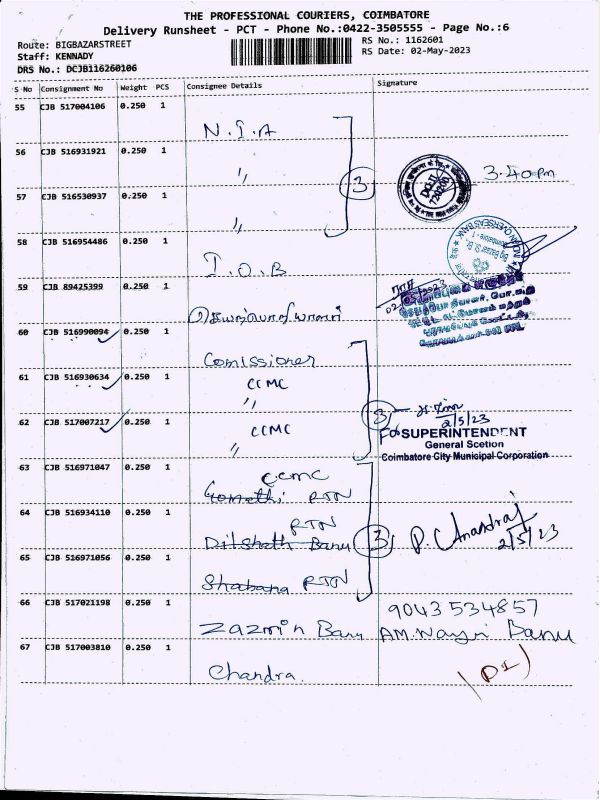 THE PROFESSIONAL COURIERS, COIMBATORE
Delivery Runsheet - PCT - Phone No.:0422-3505555 - Page No.:6
Route: BIGBAZARSTREET
RS No.: 1162601
Staff: KENNADY
RS Date: 02-May-2023
DRS No.: DCJB116260106
S No Consignment No Weight PCS Consignee Details Signature
55 CJB 517004106 0.250 1
N.I.A
56 CJB 516931921 0.250 1
"
3
3.40pm
57 CJB 516530937 0.250 1
"
58 CJB 516954486 0.250 1
I.O.B
INDIAN OVERSEAS BANK
59 CJB 89425399 0.250 1
60 CJB 516990094 0.250 1
Comissioner
CCMC
61 CJB 516930634 0.250 1
"
3
2/5/23
62 CJB 517007217 0.250 1
CCMC
"
For SUPERINTENDENT
General Scetion
Coimbatore City Municipal Corporation
63 CJB 516971047 0.250 1
CCMC
Gomathi RTN
64 CJB 516934110 0.250 1
RTN
Dilshath Banu
3
P. Chandraj
2/5/23
65 CJB 516971056 0.250 1
Shabana RTN
66 CJB 517021198 0.250 1
9043534857
Zazmin Banu
Banu
67 CJB 517003810 0.250 1
Chandra.
(DI)